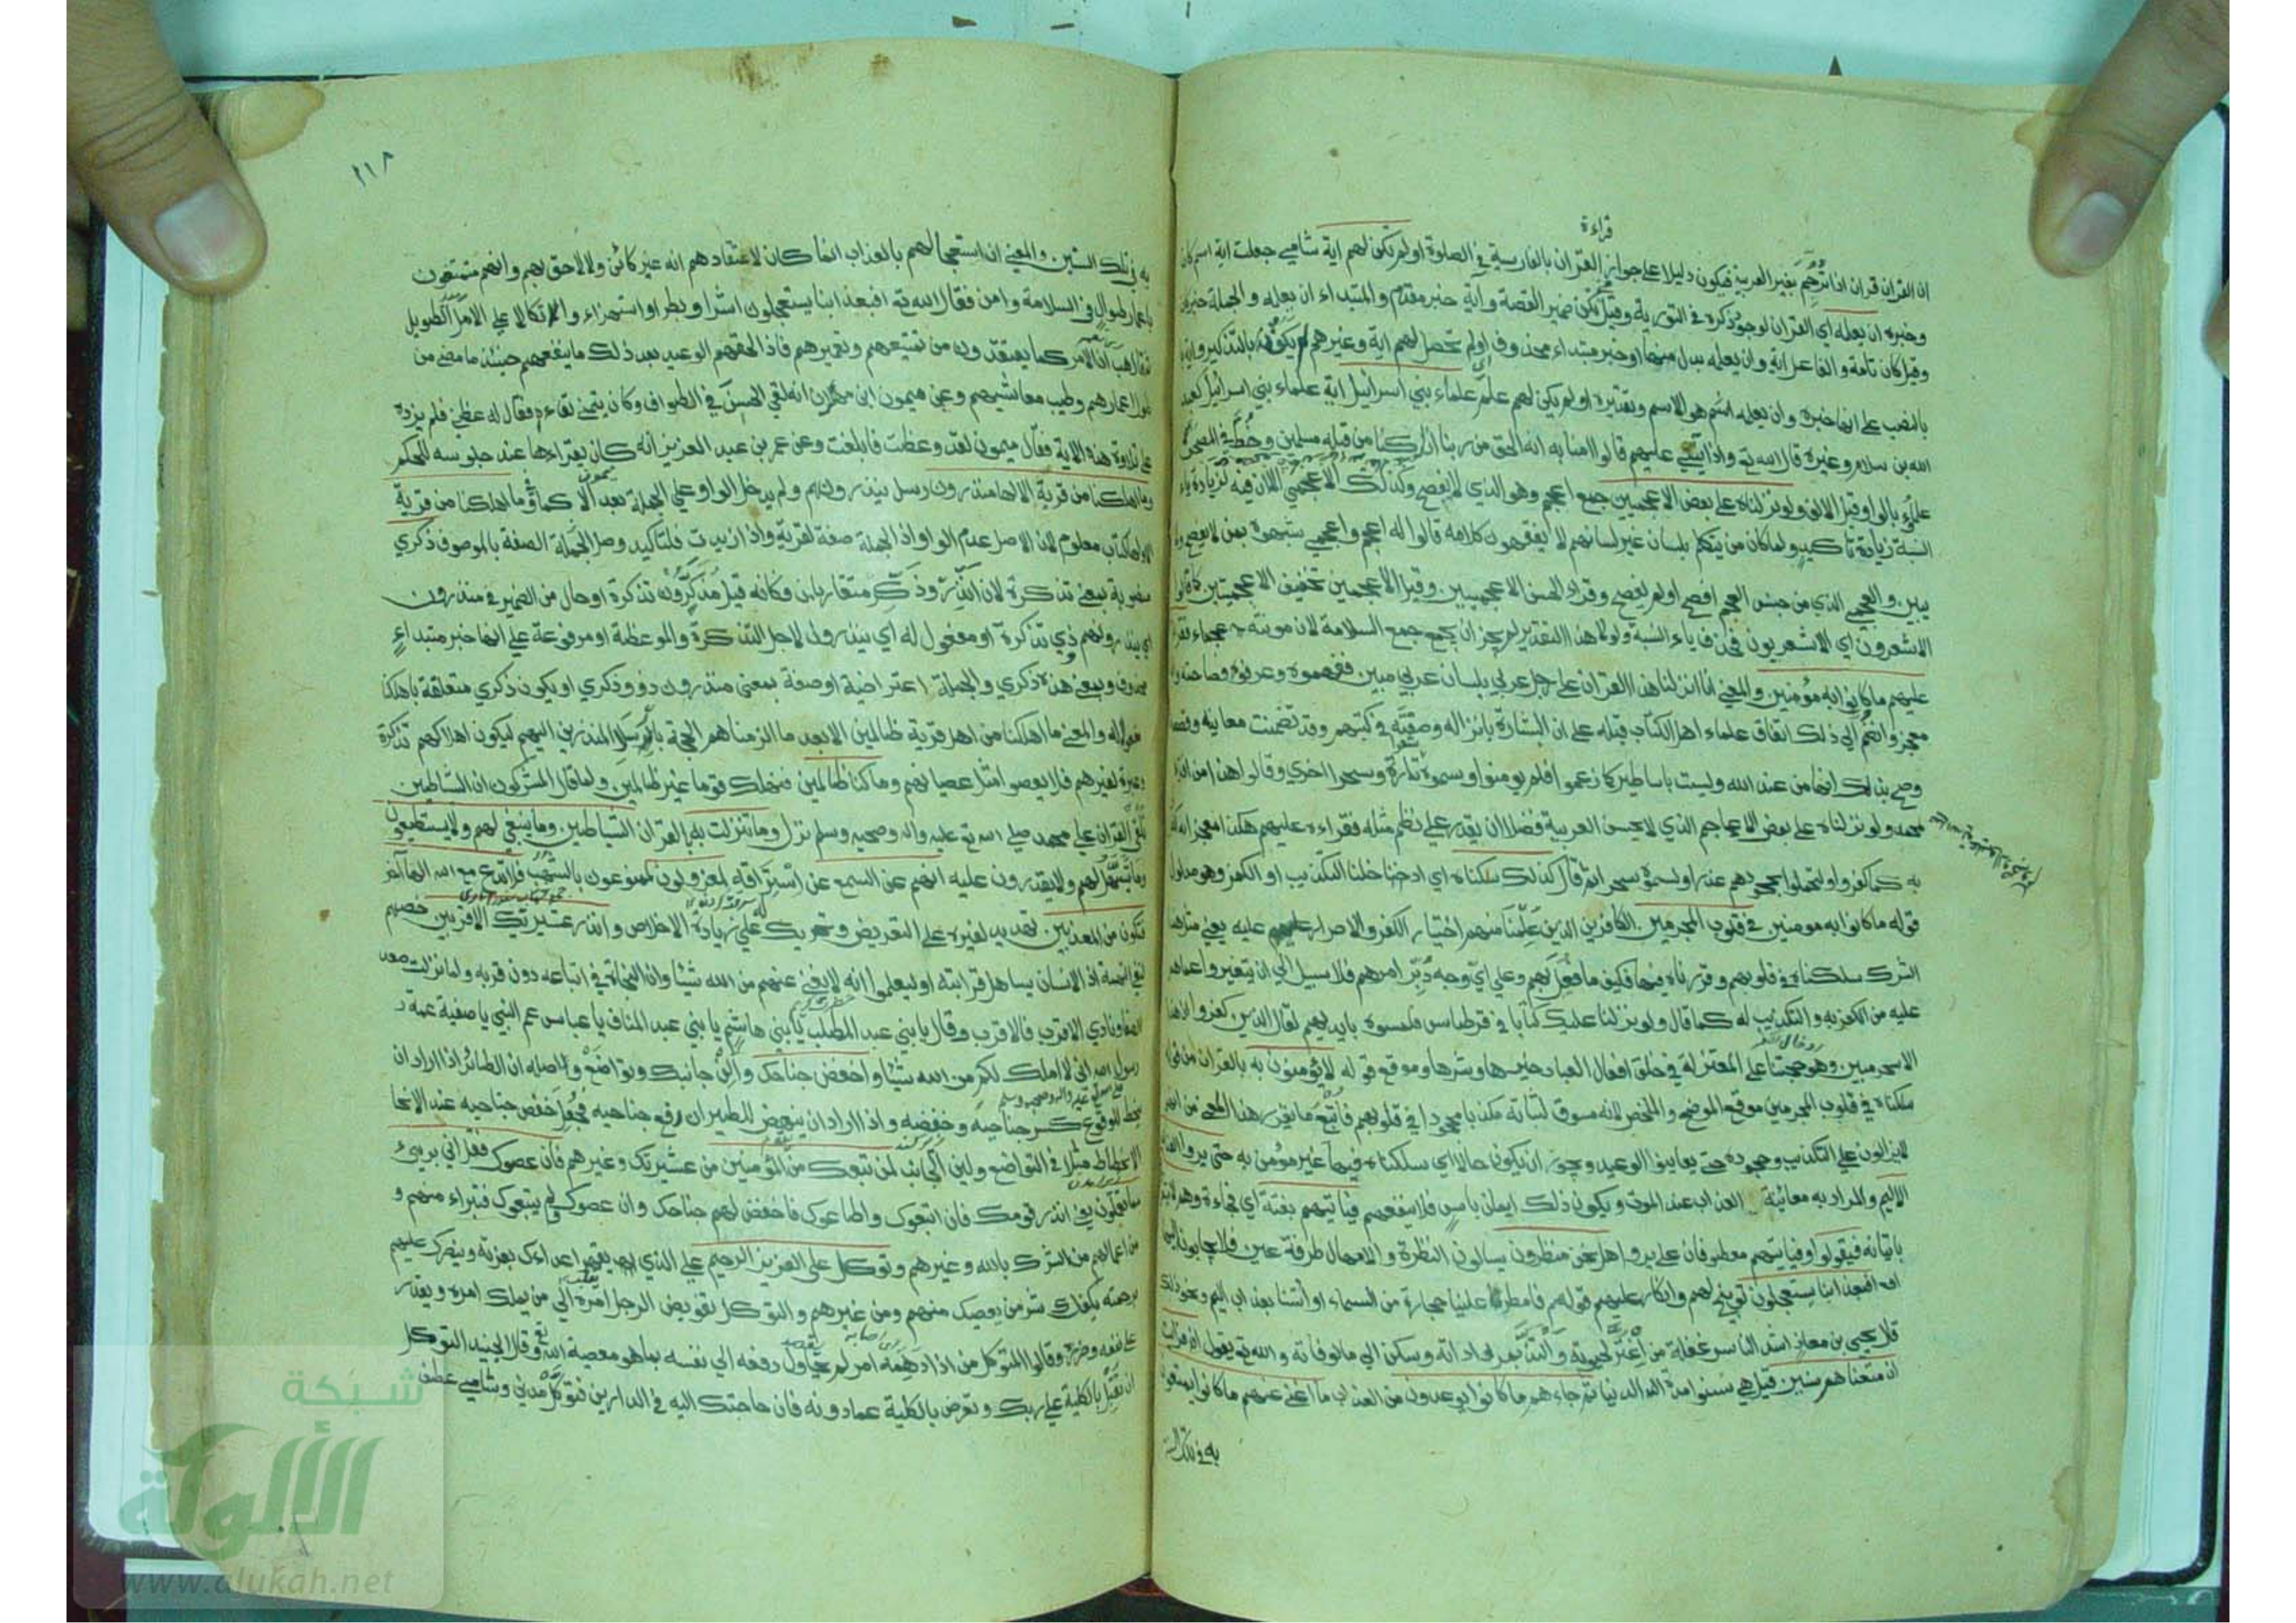 قراءة
ان القران قران اذا ترجم بغير العربية فيكون دليلا على جواز القران بالفارسية في الصلوة اولم تكن لهم اية شامي جعلت اية اسم كان
وخبره ان يعلمه اي القران لوجود ذكره في التورية وقيل في تكن ضمير القصة وآية خبر مقدم والمبتداء ان يعلمه والجملة خبر كان
وقيل كان تامة والفاعل اية وان يعلمه بدل منها او خبر مبتداء محذوف اولم تحصل لهم اية وغيرهم يكن بالتذكير واية
بالنصب على انها خبره وان يعلمه هو الاسم وتقديره اولم يكن لهم علم علماء بني اسرائيل اية علماء بني اسرائيل كعبد
الله بن سلام وغيره قال الله تع واذا يتلى عليهم قالوا امنا به انه الحق من ربنا انا كنا من قبله مسلمين وخط في المصحف
علمؤ بالواو قبل الالف ولو نزلناه على بعض الاعجمين جمع اعجم وهو الذي لا يفصح وكذلك الاعجمي الا ان فيه لزيادة ياء
النسبة زيادة تاكيد ولما كان من يتكلم بلسان غير لسانهم لا يفقهون كلامه قالوا له اعجم واعجمي شبهوه بمن لا يفصح ولا
يبين والعجمي الذي من جنس العجم افصح اولم يفصح وقراء الحسن الاعجميين وقيل الاعجمين تخفيف الاعجميين كما قالوا
الاشعرون اي الاشعريون فحذف ياء النسبة ولولا هذا التقدير لم يجز ان يجمع جمع السلامة لان مونثه عجماء فقراه
عليهم ما كانوا به مؤمنين والمعنى انا انزلنا هذا القران على رجل عربي بلسان عربي مبين ففهموه وعرفوا فصاحته وانه
معجز وانضم الى ذلك اتفاق علماء اهل الكتاب قبله على ان البشارة بانزاله وصفته في كتبهم وقد تضمنت معانيه وقصصه
وصح بذلك انها من عند الله وليست باساطير كما زعموا فلم يومنوا وسموه شعرا تارة وسحرا اخرى وقالوا هذا من افتراء
محمد ولو نزلناه على بعض الاعاجم الذي لا يحسن العربية فضلا ان يقدر على نظم مثله فقراءه عليهم هكذا معجزا لكفروا
به كما كفروا ولتمحلوا لجحودهم عذرا ولسموه سحرا ثم قال كذلك سلكناه اي ادخلنا التكذيب او الكفر وهو مدلول
قوله ما كانوا به مومنين في قلوب المجرمين الكافرين الذين علمنا منهم اختيار الكفر والاصرار عليه يعني مثل هذا
الشرك سلكناه في قلوبهم وقررناه فيها فكيف ما فعل بهم وعلى اي وجه دبر امرهم فلا سبيل الى ان يتغيروا عما هم
عليه من الكفر به والتكذيب له كما قال ولو نزلنا عليك كتابا في قرطاس فلمسوه بايديهم لقال الذين كفروا ان هذا
الا سحر مبين وهو حجتنا على المعتزلة في خلق افعال العباد خيرها وشرها وموقع قوله لا يؤمنون به بالقران من قوله
سلكناه في قلوب المجرمين موقع الموضح والملخص لانه مسوق لثباته مكذبا مجحودا في قلوبهم فاتبع ما يقرر هذا المعنى من انهم
لا يزالون على التكذيب وجحوده حتى يعاينوا الوعيد ويجوز ان يكون حالا اي سلكناه فيها غير مؤمن به حتى يروا العذاب
الاليم والمراد به معاينة العذاب عند الموت ويكون ذلك ايمان ياس فلا ينفعهم فياتيهم بغتة اي فجاءة وهم لا يشعرون
باتيانه فيقولوا وفياتيهم معطوفان على يروا هل نحن منظرون يسالون النظرة والامهال طرفة عين فلا يجابون اليها
افبعذابنا يستعجلون توبيخ لهم وانكار عليهم قولهم فامطر علينا حجارة من السماء او ائتنا بعذاب اليم ونحو ذلك
قال يحيى بن معاذ اشد الناس غفلة من اغتر بحيوته والتذ بمراداته وسكن الى مالوفاته والله تع يقول افرايت
ان متعناهم سنين قيل هي سنوا مدة الدنيا ثم جاءهم ما كانوا يوعدون من العذاب ما اغنى عنهم ما كانوا يمتعون
به في تلك السنين
٢١٨
به في تلك السنين والمعنى ان استعجالهم بالعذاب انما كان لاعتقادهم انه غير كائن ولا لاحق بهم وانهم متمتعون
باعمار طوال في السلامة وامن فقال الله تع افبعذابنا يستعجلون اشرا وبطرا واستهزاء واتكالا على الامل الطويل
ثم قال هب ان الامر كما يعتقدون من تمتيعهم وتعميرهم فاذا لحقهم الوعيد بعد ذلك ما ينفعهم حينئذ ما مضى من
طول اعمارهم وطيب معائشهم وعن ميمون ابن مهران انه لقي الحسن في الطواف وكان يتمنى لقاءه فقال له عظني فلم يزده
على تلاوة هذه الاية فقال ميمون لقد وعظت فابلغت وعن عمر بن عبد العزيز انه كان يقراءها عند جلوسه للحكم
وما اهلكنا من قرية الا لها منذرون رسل ينذرونهم ولم يدخل الواو على الجملة بعد الا كما في وما اهلكنا من قرية
الا ولها كتاب معلوم لان الاصل عدم الواو اذ الجملة صفة لقرية واذا زيدت فلتاكيد وصل الصفة بالموصوف ذكرى
منصوبة بمعنى تذكرة لان انذر وذكر متقاربان فكانه قيل مذكرون تذكرة او حال من الضمير في منذرون
اي ينذرونهم ذوي تذكرة او مفعول له اي ينذرون لاجل التذكرة والموعظة او مرفوعة على انها خبر مبتداء
محذوف وبمعنى هذه ذكرى والجملة اعتراضية او صفة بمعنى منذرون ذوو ذكرى او يكون ذكرى متعلقة باهلكنا
مفعولا له والمعنى ما اهلكنا من اهل قرية ظالمين الا بعد ما الزمناهم الحجة بارسال المنذرين اليهم ليكون اهلاكهم تذكرة
وعبرة لغيرهم فلا يعصوا مثل عصيانهم وما كنا ظالمين فنهلك قوما غير ظالمين ولما قال المشركون ان الشياطين
تلقي القران على محمد صلى الله تع عليه واله وصحبه وسلم نزل وما تنزلت به القران الشياطين وما ينبغي لهم ولا يستطيعون
وما يتسهل لهم ولا يقدرون عليه انهم عن السمع عن استراقه لمعزولون لممنوعون بالشهب فلا تدع مع الله الها آخر
فتكون من المعذبين تهديد لغيره على التعريض وتحريك على زيادة الاخلاص وانذر عشيرتك الاقربين خصهم
لنفي التهمة اذ الانسان يساهل قرابته او ليعلموا انه لا يغني عنهم من الله شيئا وان النجاة في اتباعه دون قربه ولما نزلت صعد
الصفا ونادى الاقرب فالاقرب وقال يا بني عبد المطلب يا بني هاشم يا بني عبد المناف يا عباس عم النبي يا صفية عمة
رسول الله اني لا املك لكم من الله شيئا واخفض جناحك والن جانبك وتواضع واصله ان الطائر اذا اراد ان
ينحط للوقوع كسر جناحيه وخفضه واذا اراد ان ينهض للطيران رفع جناحيه فجعل خفض جناحيه عند الانحطا
الانحطاط مثلا في التواضع ولين الجانب لمن تبعك من المؤمنين من عشيرتك وغيرهم فان عصوك فقل اني بريء
مما تعملون يعني انذر قومك فان اتبعوك واطاعوك فاخفض لهم جناحك وان عصوك ولم يتبعوك فتبراء منهم و
من اعمالهم من الشرك بالله وغيرهم وتوكل على العزيز الرحيم على الذي يقهر اعداءك بعزته وينصرك عليهم
برحمته يكفك شر من يعصيك منهم ومن غيرهم والتوكل تفويض الرجل امره الى من يملك امره ويقدر
على نفعه وضره وقالوا المتوكل من اذا دهمه امر لم يحاول دفعه الى نفسه بما هو معصية الله وقال الجنيد التوكل
ان تقبل بالكلية على ربك وتعرض بالكلية عما دونه فان حاجتك اليه في الدارين فتوكل مدني وشامي عطف
شبكة
الألوكة
www.alukah.net